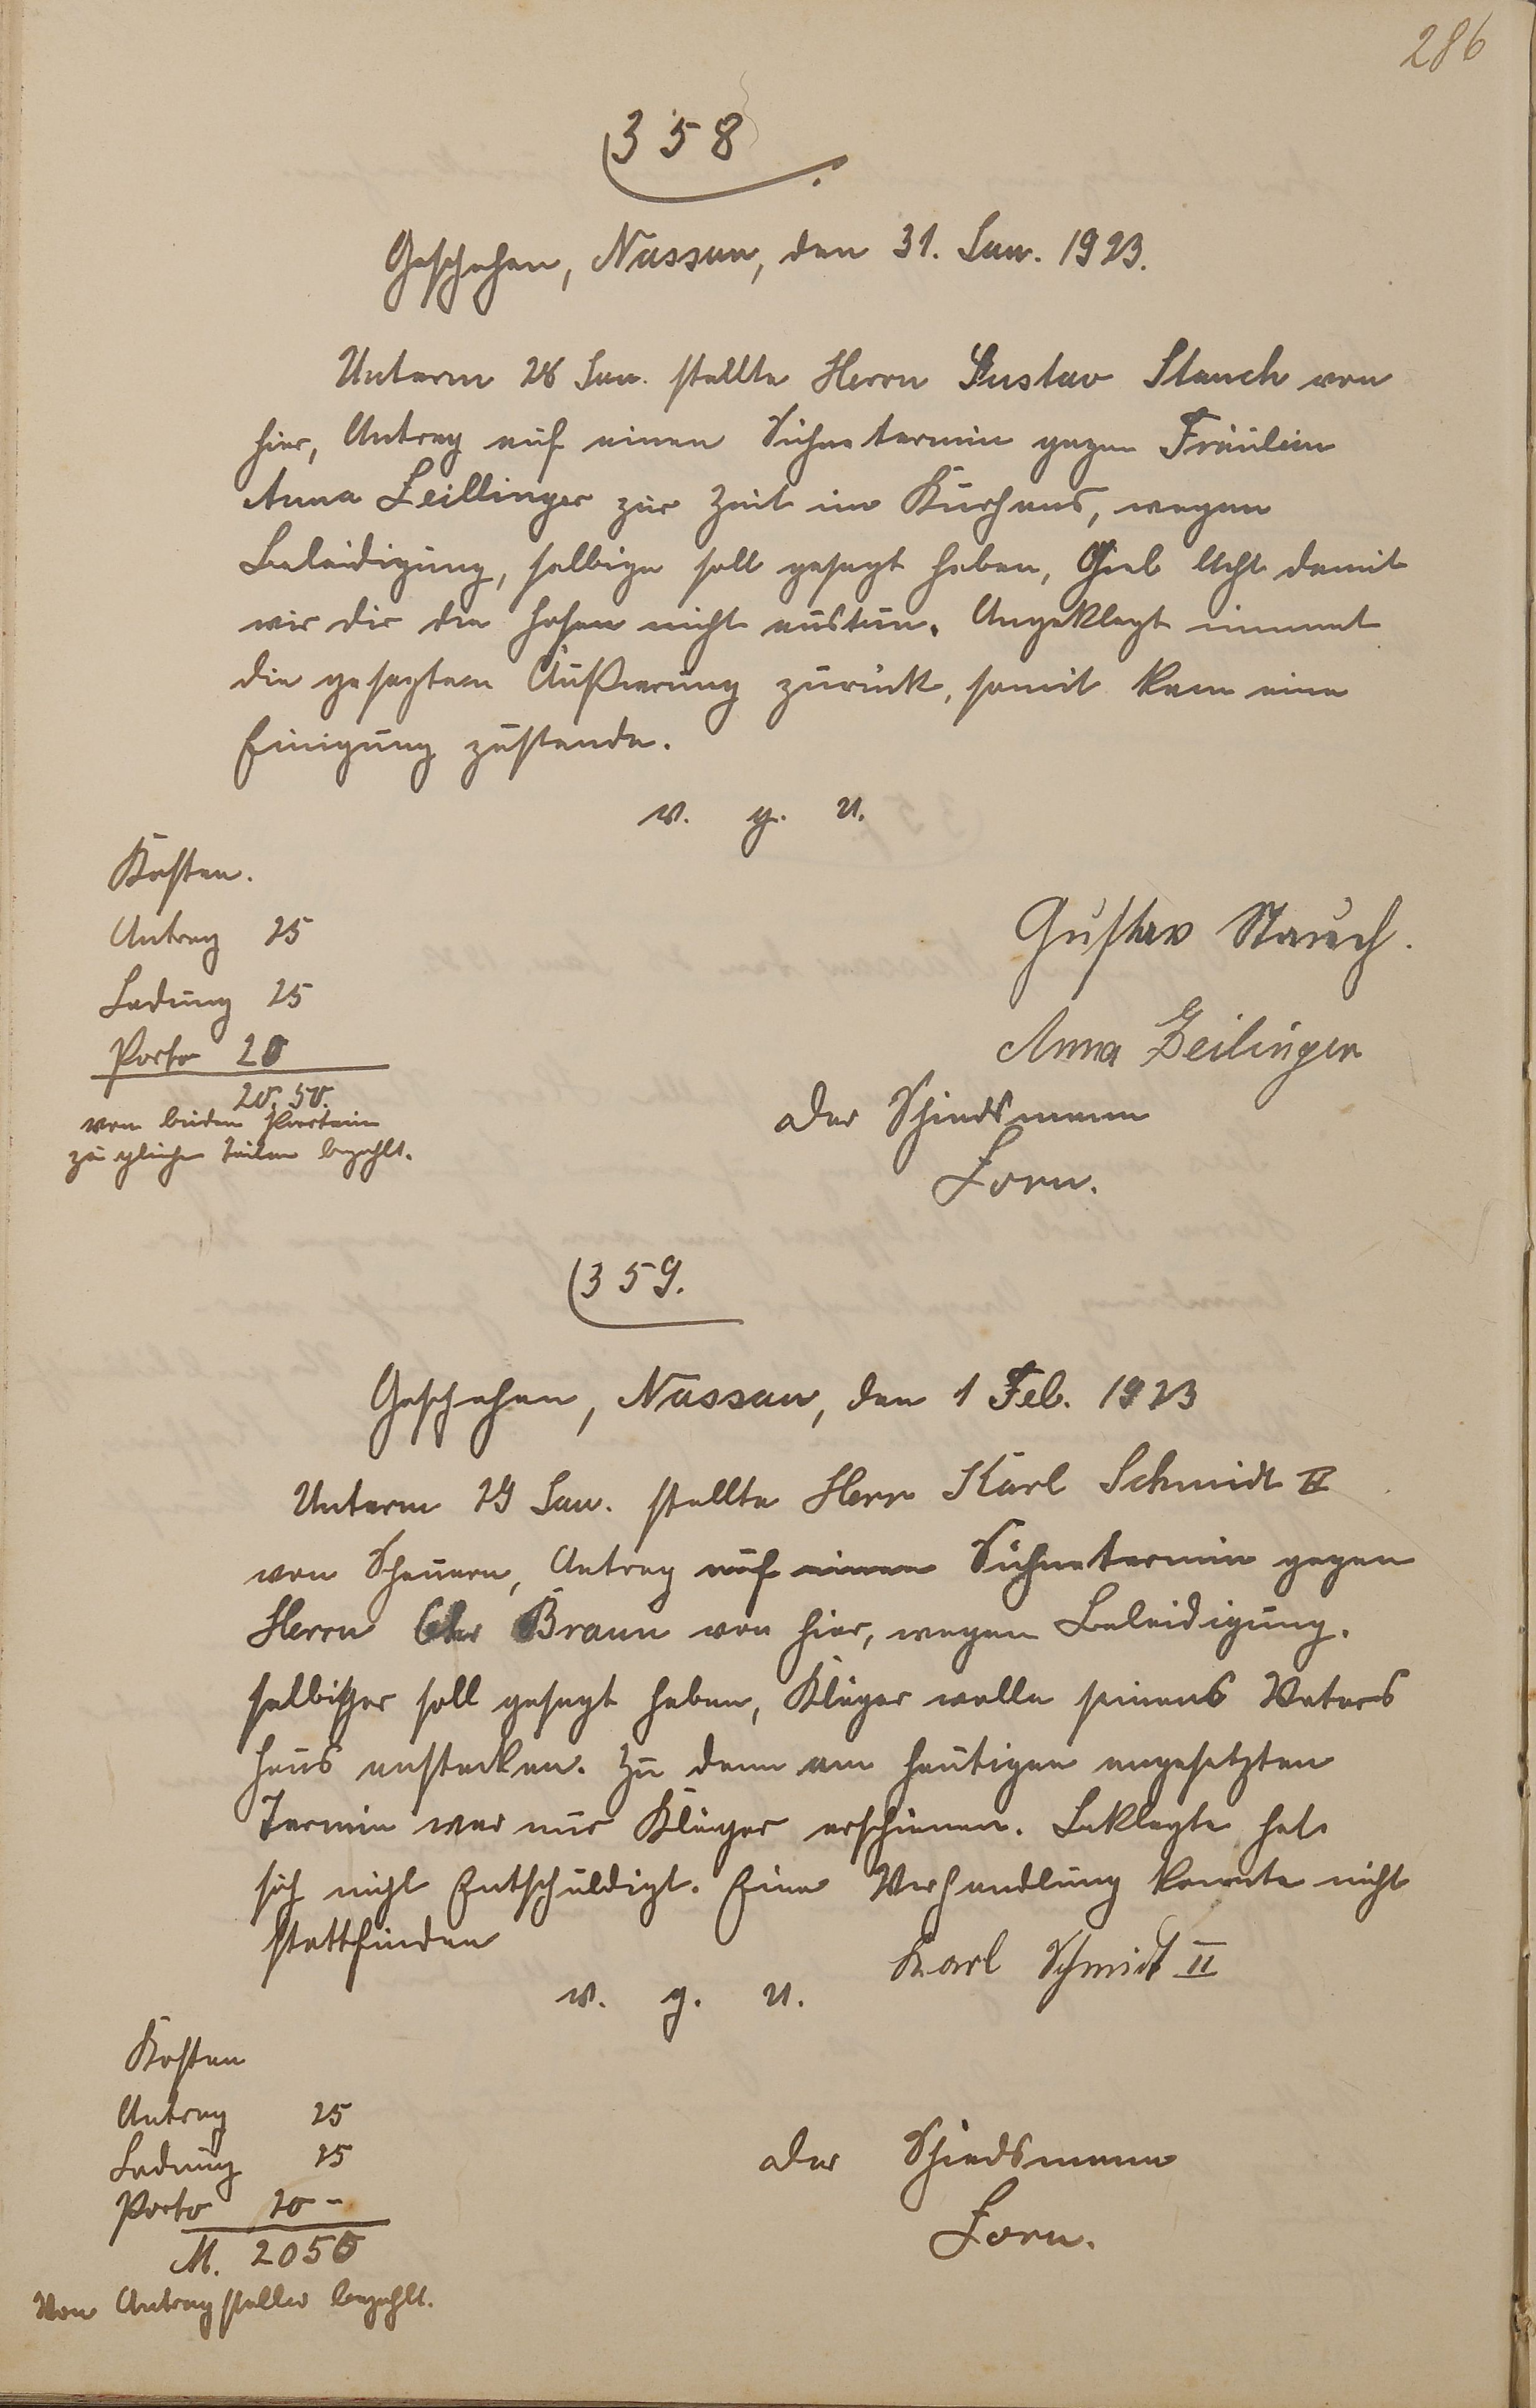 286
358
Geschehen, Nassau, den 31. Jan. 1923.
Unterm 28 Jan. stellte Herrn Gustav Stauch von
hier, Antrag auf einen Sühnetermin gegen Fräulein
Anna Zeillinger zur Zeit im Kurhaus, wegen
Beleidigung, selbige soll gesagt haben, Gieb Acht damit
wir dir die Hosen nicht austun. Angeklagt nimmt
die gesagten Äußerung zurück, somit kam eine
Einigung zustande.
v. g. u.
Kosten.
Antrag 25
Ladung 25
Porto 20
20,50.
von beiden Partein
zu gleichen Teilen bezahlt.
Gustav Stauch.
Anna Zeilinger
Der Schiedsmann
Zorn.
359.
Geschehen, Nassau, den 1 Feb. 1923
Unterm 29 Jan. stellte Herr Karl Schmidt II
von Scheuern, Antrag auf einen Sühnetermin gegen
Herrn Chr Braun von hier, wegen Beleidigung.
selbiger soll gesagt haben, Kläger wolle seinens Vaters
Haus anstecken. Zu dem am heutigen angesetzten
Termin war nur Kläger erschienen. Beklagte hat
sich nicht Entschuldigt. Eine Verhandlung konnte nicht
stattfinden
Karl Schmidt II
v. g. u.
Kosten
Antrag 25
Ladung 25
Porto 20 -
M. 2050
Von Antragsteller bezahlt.
Der Schiedsmann
Zorn.